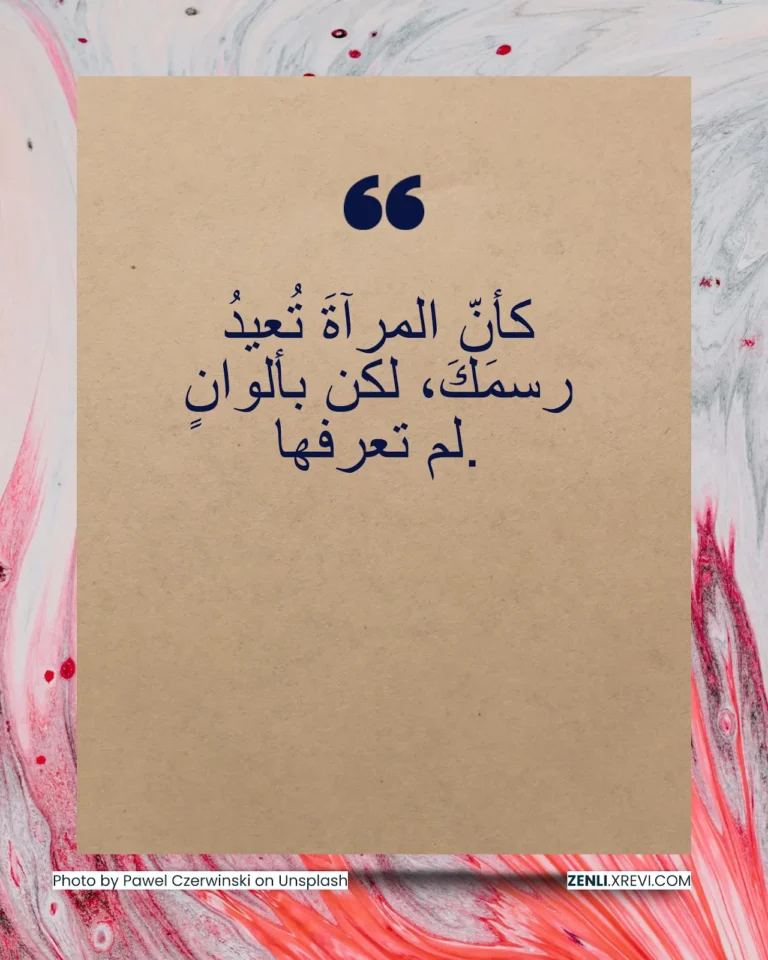 ❝
كأنّ المرآةَ تُعيدُ
رسمَكَ، لكن بألوانٍ
لم تعرفها.
Photo by Pawel Czerwinski on Unsplash
ZENLI.XREVI.COM